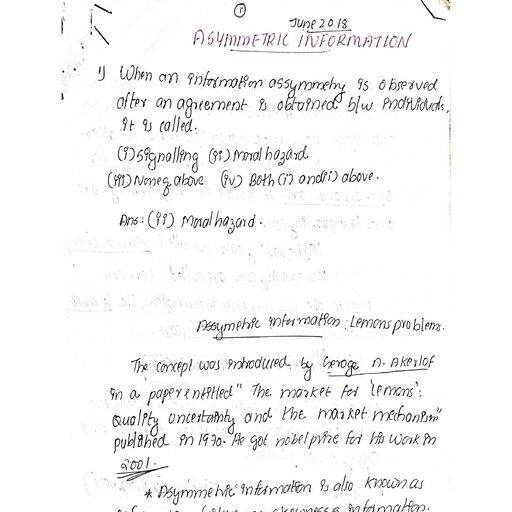 ①
June 2018
ASYMMETRIC INFORMATION
1) When an information assymmetry is observed
after an agreement is obtained b/w individuals,
it is called.
(i) Signalling (ii) Moral hazard
(iii) None of above (iv) Both (i) and (ii) above.
Ans: (ii) Moral hazard.
Assymetric information : Lemons problems.
The concept was introduced by Geroge A. Akerlof
in a paper entitled " The market for 'lemons':
Quality uncertainty and the market mechanism"
published in 1970. He got nobel prize for his work in
2001.
* Asymmetric information is also known as
information.